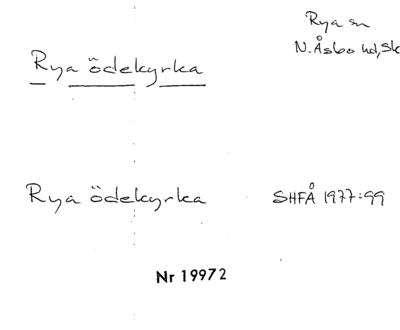 Rya sn
N.Åsbo hd, Sk
Rya ödekyrka
Rya ödekyrka
SHFÅ 1977:99
Nr 19972